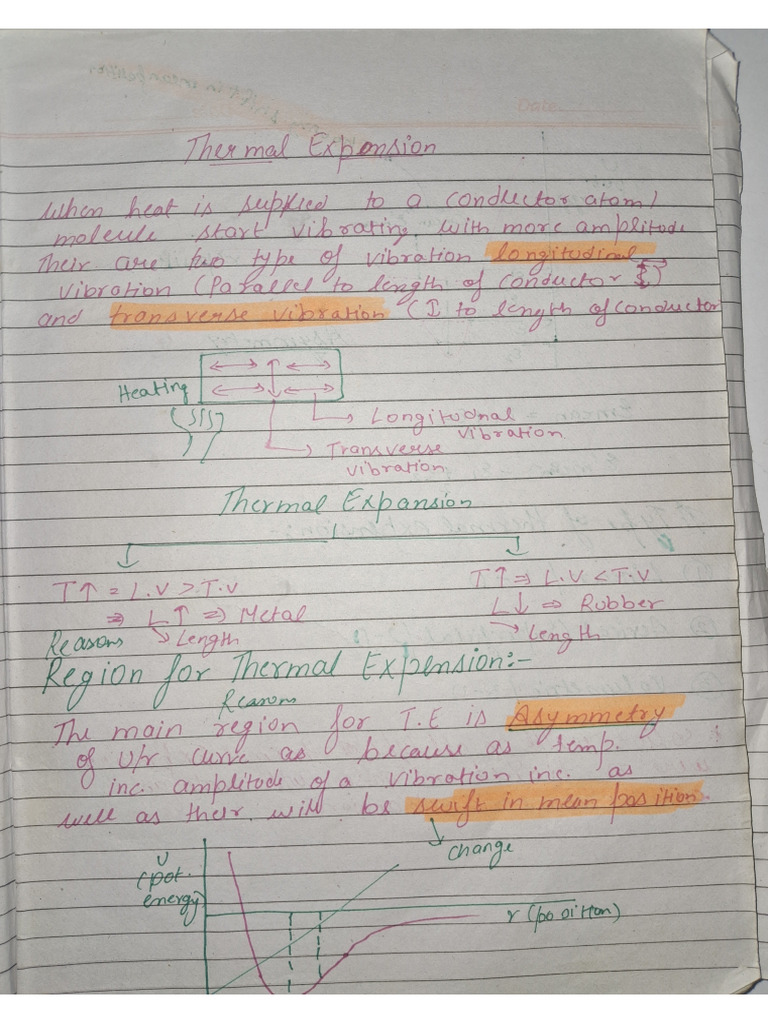 Date
Thermal Expansion
When heat is supplied to a conductor atom/
molecule start vibrating with more amplitude
Their are two type of vibration longitudinal
vibration (Parallel to length of conductor)
and transverse vibration (⊥ to length of conductor
Heating
→ Longitudnal
vibration
→ Transverse
vibration
Thermal Expansion
T↑ = L.V > T.V
T↑ ⇒ L.V < T.V
⇒ L↑ ⇒ Metal
L↓ ⇒ Rubber
Reasons
→ Length
→ length
Region for Thermal Expension:-
Reasons
The main region for T.E is Asymmetry
of U/r curve as because as temp.
inc. amplitude of a vibration inc. as
well as their will be swift in mean position.
change
U
(pot.
energy)
r (position)